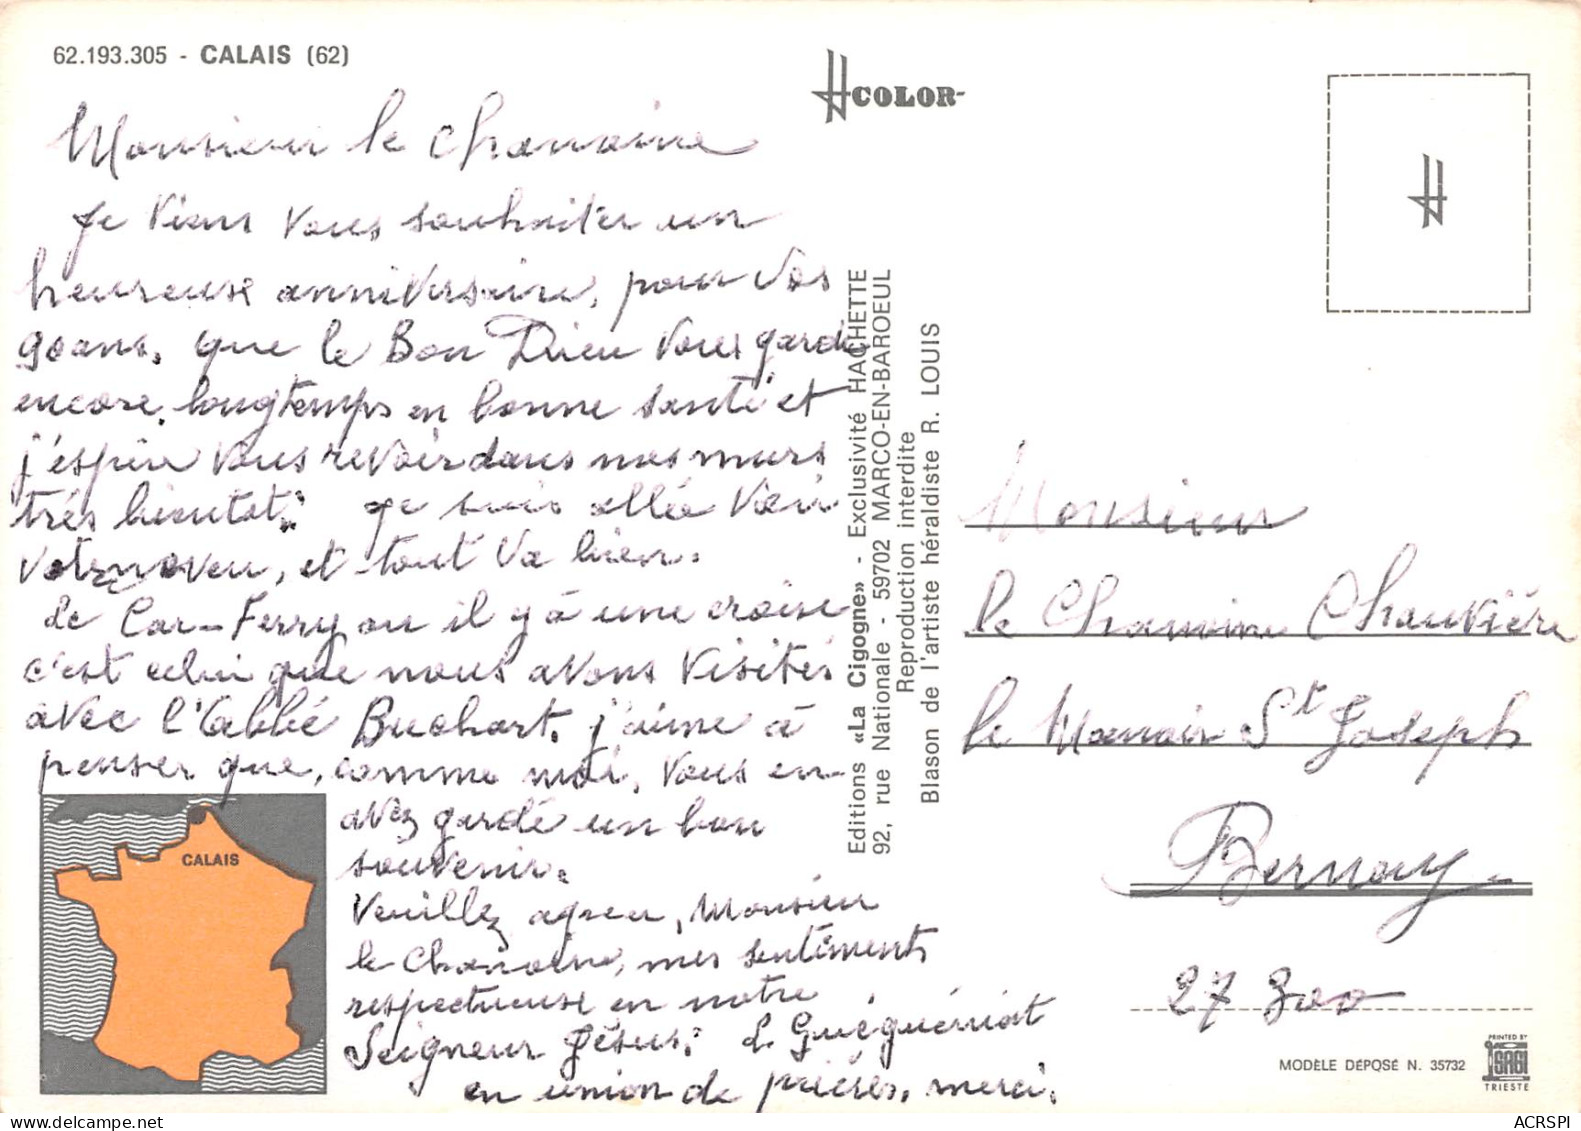 62.193.305 - CALAIS (62)
Monsieur le Chanoine
Je viens vous souhaiter un
heureuse anniversaire, pour vos
90ans, que le Bon Dieu vous garde
encore, longtemps en bonne santé et
j'espère vous revoir dans nos murs
très bientot. Je suis allée voir
votre neveu, et tout va bien.
Le Car-Ferry ou il y à une croise
c'est celui que nous avons visités
avec l'abbé Buchart. j'aime à
penser que, comme moi, vous en
avez gardé un bon
souvenir.
Veuillez agreer, Monsieur
le Chanoine, mes sentiments
respectueuse en notre
Seigneur Jésus; L Guéguéniat
en union de prières, merci.
CALAIS
COLOR
Editions «La Cigogne» - Exclusivité HACHETTE
92, rue Nationale - 59702 MARCQ-EN-BAROEUL
Reproduction interdite
Blason de l'artiste héraldiste R. LOUIS
Monsieur
le Chanoine Chauvière
le Manoir St Joseph
Bernay
27 300
MODÈLE DÉPOSÉ N. 35732
PRINTED BY
SAGI
TRIESTE
ACRSPI